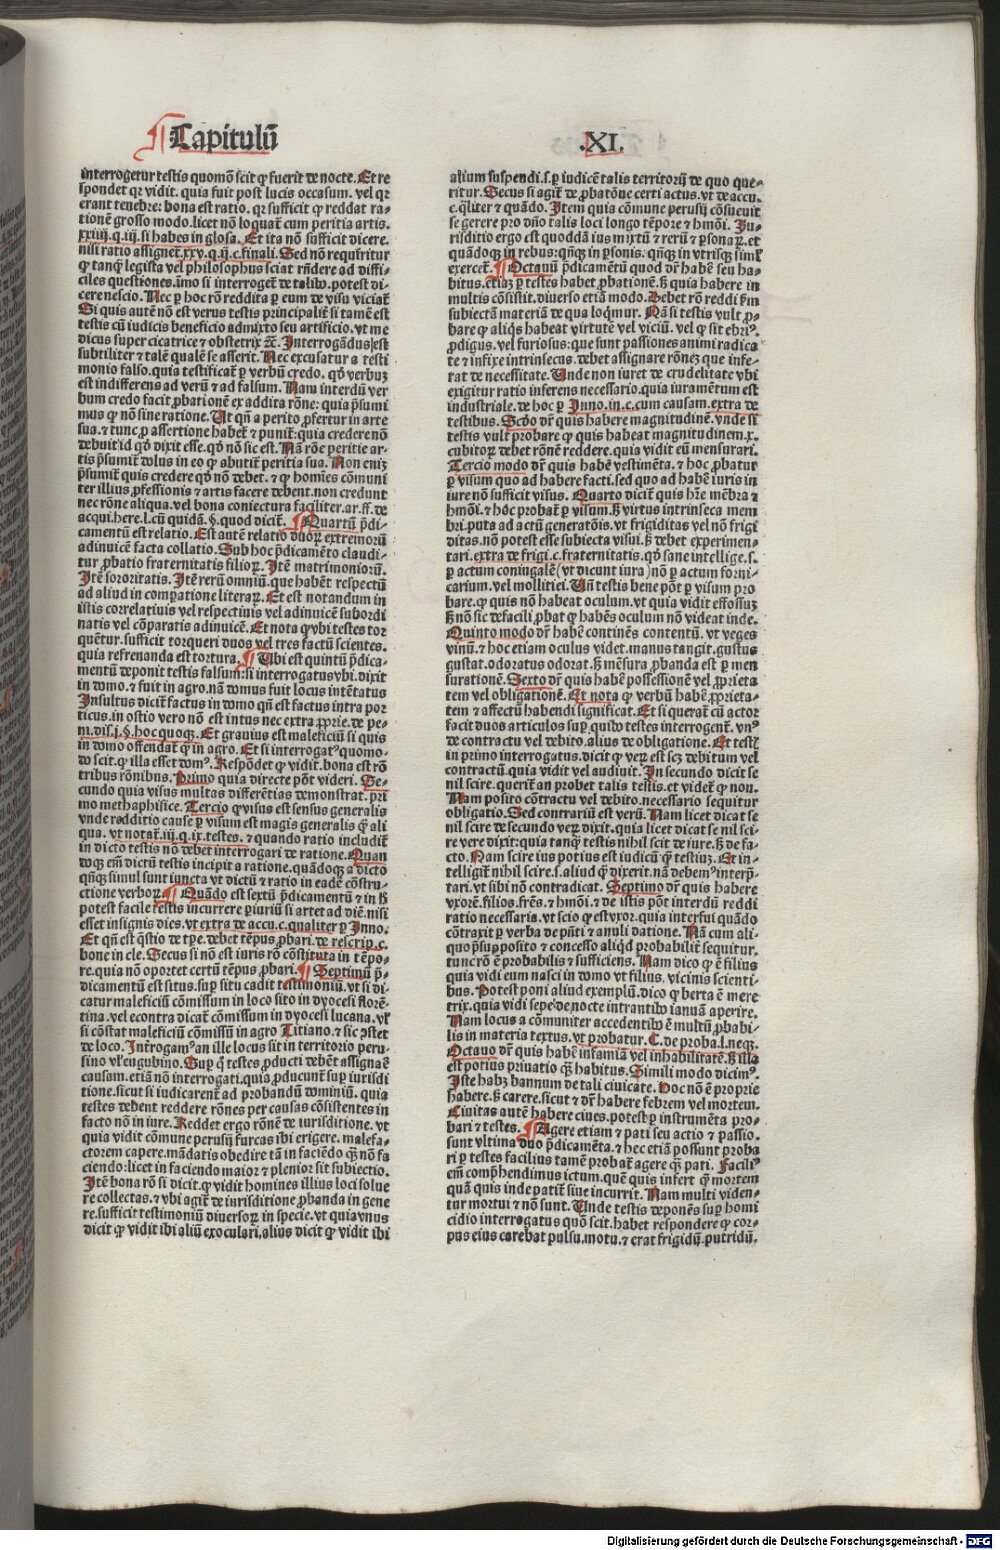 ¶ Capitulū
.XI.
interrogetur testis quomō scit ꝙ fuerit de nocte. Et re
spondet qꝛ vidit. quia fuit post lucis occasum. vel qꝛ
erant tenebre: bona est ratio. qꝛ sufficit ꝙ reddat ra-
tionē grosso modo. licet nō loquat̄ cum peritia artis.
xxiiij.q.iij. si habes in glosa. Et ita nō sufficit dicere.
nisi ratio assignet̄.xxv.q.ij.c.finali. Sed nō requiritur
ꝙ tanꝙ̄ legista vel philosophus sciat rn̄dere ad diffi-
ciles questiones. imo si interroget̄ de talib⁹. potest di-
cere nescio. Nec ꝑ hoc rō reddita ꝑ eum de visu viciat̄
Si quis autē nō est verus testis principalit̄ si tamē est
testis cū iudicis beneficio admixto seu artificio. vt me
dicus super cicatrice ⁊ obstetrix ⁊c̄. Interrogādus est
subtiliter ⁊ talē qualē se asserit. Nec excusatur a testi
monio falso. quia testificat̄ ꝑ verbū credo. qd̄ verbuꝫ
est indifferens ad verū ⁊ ad falsum. Nam interdū ver
bum credo facit ꝓbationē ex addita rōne: quia p̄sumi
mus ꝙ nō sine ratione. Ut qn̄ a perito ꝓfertur in arte
sua. ⁊ tunc ꝓ assertione habet̄ ⁊ punit̄: quia credere nō
debuit id qd̄ dixit esse. qd̄ nō sic est. Nā rōe peritie ar-
tis p̄sumit̄ dolus in eo ꝙ abutit̄ peritia sua. Non eniꝫ
p̄sumit̄ quis credere qd̄ nō debet. ⁊ ꝙ homīes cōmuni
ter illius ꝓfessionis ⁊ artis facere debent. non credunt
nec rōne aliqua. vel bona coniectura faciliter. ar.ff.de
acqui.here.l.cū quidā.§.quod dicit̄. ¶ Quartū p̄di-
camentū est relatio. Est autē relatio duoꝝ extremorū
adinuicē facta collatio. Sub hoc p̄dicamēto claudi-
tur ꝓbatio fraternitatis filioꝝ. Itē matrimoniorū.
Itē sororitatis. Itē rerū omniū. que habēt respectū
ad aliud in comꝑatione literaꝝ. Et est notandum in
istis correlatiuis vel respectiuis vel adinuicē subordi
natis vel cōparatis adinuicē. Et nota ꝙ vbi testes tor
quētur. sufficit torqueri duos vel tres factū scientes.
quia refrenanda est tortura. ¶ Ubi est quintū p̄dica-
mentū deponit testis falsum: si interrogatus vbi. dixit
in domo. ⁊ fuit in agro. nā domus fuit locus intētatus
Insultus dicit̄ factus in domo qn̄ est factus intra por
ticus. in ostio vero nō est intus nec extra ꝓprie. de pe-
ni.dis.j.§.hoc quoqꝫ. Et grauius est maleficiū si quis
in domo offendat̄ ꝙ̄ in agro. Et si interrogat⁹ quomo-
do scit. ꝙ illa esset dom⁹. Respōdet ꝙ vidit. bona est rō
tribus rōnibus. Primo quia directe pōt videri. Se-
cundo quia visus multas differētias demonstrat. pri
mo methaphisice. Tercio ꝙ visus est sensus generalis
vnde redditio cause ꝑ visum est magis generalis ꝙ̄ ali
qua. vt notat̄.iij.q.ix.testes. ⁊ quando ratio includit̄
in dicto testis nō debet interrogari de ratione. Quan
doqꝫ em̄ dictū testis incipit a ratione. quādoqꝫ a dicto
qn̄qꝫ simul sunt iuncta vt dictū ⁊ ratio in eadē cōstru-
ctione verboꝝ. ¶ Quādo est sextū p̄dicamentū ⁊ in h̄
potest facile testis incurrere ꝑiuriū si artet ad diē. nisi
esset insignis dies. vt extra de accu.c.qualiter ꝑ Inno.
Et qn̄ est q̄stio de tꝑe. debet tēpus ꝓbari. de rescrip.c.
bone in ele. Secus si nō est iuris rō cōstituta in tēpo-
re. quia nō oportet certū tēpus ꝓbari. ¶ Septimū p̄-
dicamentū est situs. suꝑ situ cadit testimoniū. vt si di-
catur maleficiū cōmissum in loco sito in dyocesi florē-
tina. vel econtra dicat̄ cōmissum in dyocesi lucana. vl̄
si cōstat maleficiū cōmissū in agro Titiano. ⁊ sic ꝯstet
de loco. Int̄rogam⁹ an ille locus sit in territorio peru-
sino vl̄ eugubino. Suꝑ q̄ testes ꝓducti debēt assignaē
causam. etiā nō interrogati. quia ꝓducunt suꝑ iurisdi
tione. sicut si iudicarent̄ ad probandū dominiū. quia
testes debent reddere rōnes per causas cōsistentes in
facto nō in iure. Reddet ergo rōnē de iurisditione. vt
quia vidit cōmune perusij furcas ibi erigere. malefa-
ctorem capere. mādatis obedire tā in faciēdo ꝙ̄ nō fa
ciendo: licet in faciendo maior ⁊ plenior sit subiectio.
Itē bona rō si dicit. ꝙ vidit homines illius loci solue
re collectas. ⁊ vbi agit̄ de iurisditione ꝓbanda in gene
re. sufficit testimoniū diuersoꝝ in specie. vt quia vnus
dicit ꝙ vidit ibi aliū exoculari. alius dicit ꝙ vidit ibi
alium suspendi.s.ꝑ iudicē talis territorij de quo que-
ritur. Secus si agit̄ de ꝓbatōne certi actus. vt de accu.
c.q̄liter ⁊ quādo. Item quia cōmune perusij cōsueuit
se gerere pro dn̄o talis loci longo tēpore ⁊ hm̄oi. Ju-
risditio ergo est quoddā ius mixtū ⁊ rerū ⁊ ꝑsonaꝝ. et
quādoqꝫ in rebus: qn̄qꝫ in ꝑsonis. qn̄qꝫ in vtrisqꝫ simul
exercet̄. ¶ Octauū p̄dicamētū quod dr̄ habē seu ha-
bitus. etiaꝫ ꝑ testes habet ꝓbationē. ꝫ quia habere in
multis cōsistit. diuerso etiā modo. Debet rō reddi ẜm
subiectā materiā de qua loq̄mur. Nā si testis vult ꝓ-
bare ꝙ aliq̄s habeat virtutē vel viciū. vel ꝙ sit ebri⁹.
ꝓdigus. vel furiosus: que sunt passiones animi radica
te ⁊ infixe intrinsecus. debet assignare rōneꝫ que infe-
rat de necessitate. Unde non iuret de crudelitate vbi
exigitur ratio inferens necessario. quia iuramētum est
industriale. de hoc ꝑ Inno.in.c.cum causam.extra de
testibus. Scd̄o dr̄ quis habere magnitudinē. vnde si
testis vult probare ꝙ quis habeat magnitudinem.x.
cubitoꝝ debet rōnē reddere. quia vidit eū mensurari.
Tercio modo dr̄ quis habē vestimēta. ⁊ hoc ꝓbatur
ꝑ visum quo ad habere facti. sed quo ad habē iuris in
iure nō sufficit visus. Quarto dicit̄ quis hr̄e mēbra ⁊
hm̄oi. ⁊ hoc probat̄ ꝑ visum. ꝫ virtus intrinseca mem
bri. puta ad actū generatōis. vt frigiditas vel nō frigi
ditas. nō potest esse subiecta visui. ꝫ debet experimen-
tari. extra de frigi.c.fraternitatis. qd̄ sane intellige.s.
ꝑ actum coniugalē (vt dicunt iura) nō ꝑ actum forni-
carium. vel mollitiei. Un̄ testis bene pōt ꝑ visum pro
bare. ꝙ quis nō habeat oculum. vt quia vidit effossuꝫ
ꝫ nō sic de facili ꝓbat ꝙ habēs oculum nō videat inde.
Quinto modo dr̄ habē continēs contentū. vt veges
vinū. ⁊ hoc etiam oculus videt. manus tangit. gustus
gustat. odoratus odorat. ꝫ mēsura ꝓbanda est ꝑ men
surationē. Sexto dr̄ quis habē possessionē vel ꝓprieta
tem vel obligationē. Et nota ꝙ verbū habē ꝓprieta-
tem ⁊ affectū habendi significat. Et si querat̄ cū actor
facit duos articulos suꝑ quib⁹ testes interrogent̄. vn⁹
de contractu vel debito. alius de obligatione. Et testis
in primo interrogatus. dicit ꝙ veꝝ est scꝫ debitum vel
contractū. quia vidit vel audiuit. In secundo dicit se
nil scire. querit̄ an probet talis testis. et videt̄ ꝙ non.
Nam posito cōtractu vel debito. necessario sequitur
obligatio. Sed contrariū est verū. Nam licet dicat se
nil scire de secundo veꝝ dixit. quia licet dicat se nil sci-
re vere dixit: quia tanꝙ̄ testis nihil scit de iure. ꝫ de fa-
cto. Nam scire ius potius est iudicū ꝙ̄ testiuꝫ. Et in-
telligit̄ nihil scire.s.aliud ꝙ̄ dixerit. nā debem⁹ interp̄-
tari. vt sibi nō contradicat. Septimo dr̄ quis habere
vxorē. filios. fr̄es. ⁊ hm̄oi. ⁊ de istis pōt interdū reddi
ratio necessaris. vt scio ꝙ est vxor. quia interfui quādo
cōtraxit ꝑ verba de p̄nti ⁊ anuli datione. Nā cum ali-
quo p̄supposito ⁊ concesso aliqd̄ probabilit̄ sequitur.
tunc rō ē probabilis ⁊ sufficiens. Nam dico ꝙ ē filius
quia vidi eum nasci in domo vt filius. vicinis scienti-
bus. Potest poni aliud exemplū. dico ꝙ berta ē mere
trix. quia vidi sepe de nocte intrantib⁹ ianuam aperire.
Nam locus a cōmuniter accedentib⁹ ē multū ꝓbabi-
lis in materia textus. vt probatur. C.de proba.l.neqꝫ.
Octauo dr̄ quis habē infamiā vel inhabilitatē. ꝫ illa
est potius priuatio ꝙ̄ habitus. Simili modo dicim⁹.
Iste habꝫ bannum de tali ciuicate. Hoc nō ē proprie
habere. ꝫ carere. sicut ⁊ dr̄ habere febrem vel mortem.
Ciuitas autē habere ciues. potest ꝑ instrumēta pro-
bari ⁊ testes. ¶ Agere etiam ⁊ pati seu actio ⁊ passio.
sunt vltima duo p̄dicamēta. ⁊ hec etiā possunt proba
ri ꝑ testes facilius tamē probat̄ agere ꝙ̄ pati. Facili⁹
em̄ comp̄hendimus ictum. quē quis infert ꝙ̄ mortem
quā quis inde patit̄ siue incurrit. Nam multi viden-
tur mortui ⁊ nō sunt. Unde testis deponēs suꝑ homi
cidio interrogatus quō scit. habet respondere ꝙ cor-
pus eius carebat pulsu. motu. ⁊ erat frigidū. putridū.
Digitalisierung gefördert durch die Deutsche Forschungsgemeinschaft - DFG